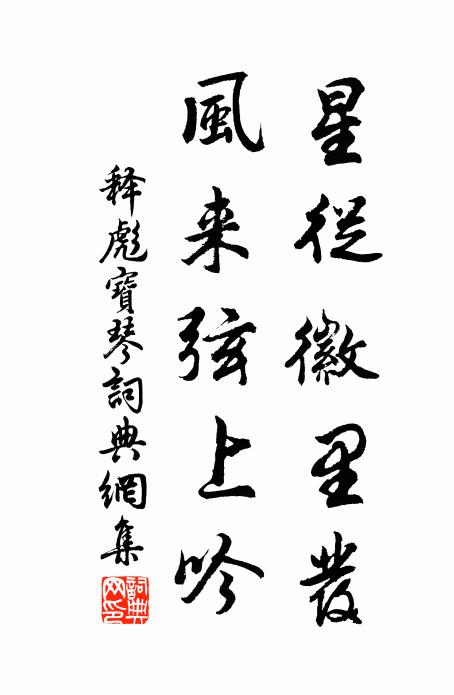 星從徽里發
風来弦上吟
释彪寶琴詞典網集
詞典網印